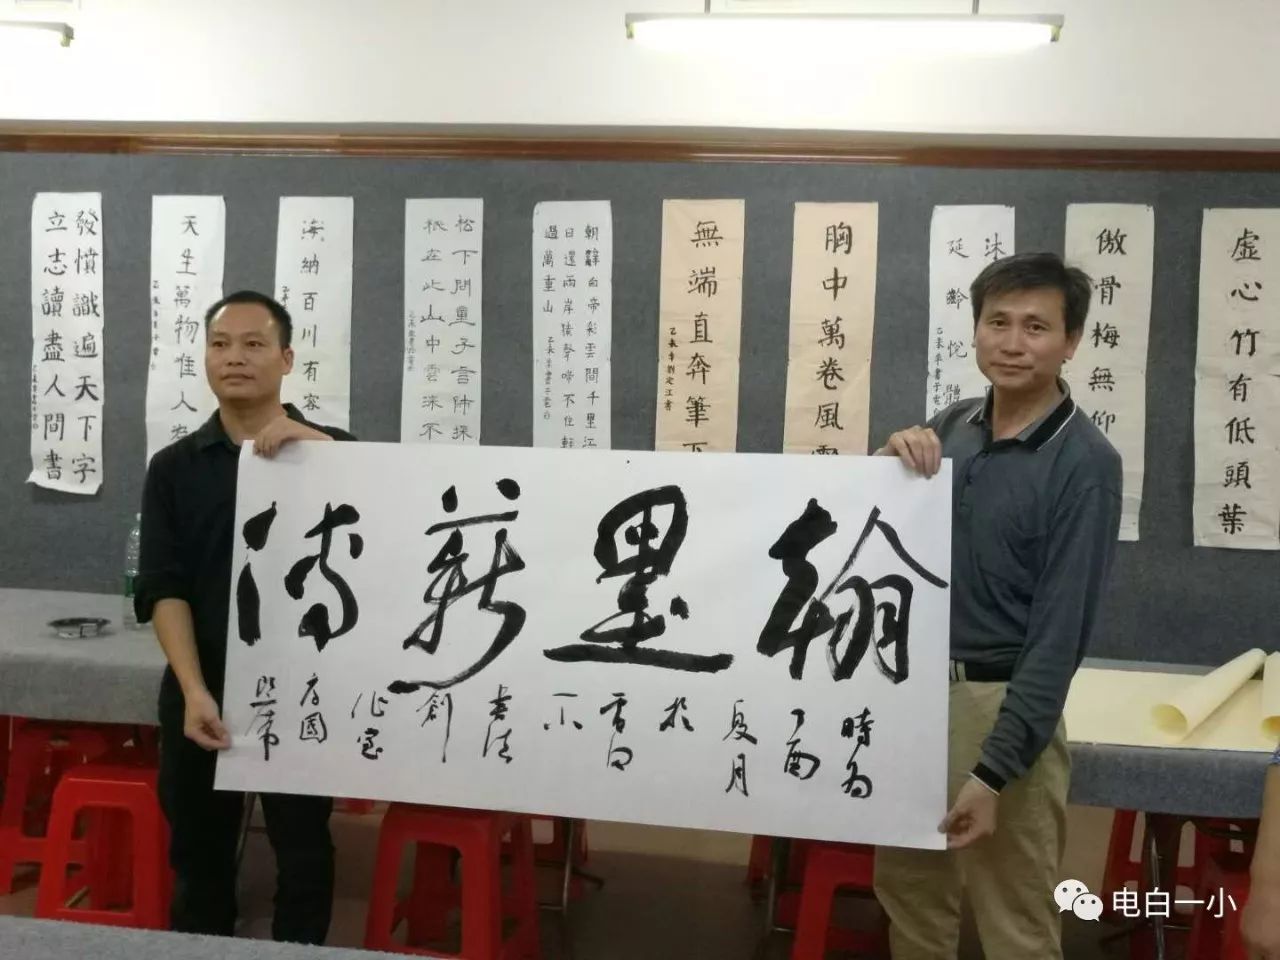 發憤識遍天下字
立志讀盡人間書
天生萬物惟人
海納百川有容
松下問童子言師採
祇在此山中雲深不
朝辭白帝彩雲間千里江
日還兩岸猿聲啼不住輕
過萬重山 乙未年書于電白
無端直奔筆下
乙未年劉定江書
胸中萬卷風雷
沐
延齡悅體
乙未年書于電
傲骨梅無仰
虛心竹有低頭葉
翰墨薪傳
時為
丁酉
夏月
於
電白
一小
書法
創
作室
方國
电白一小